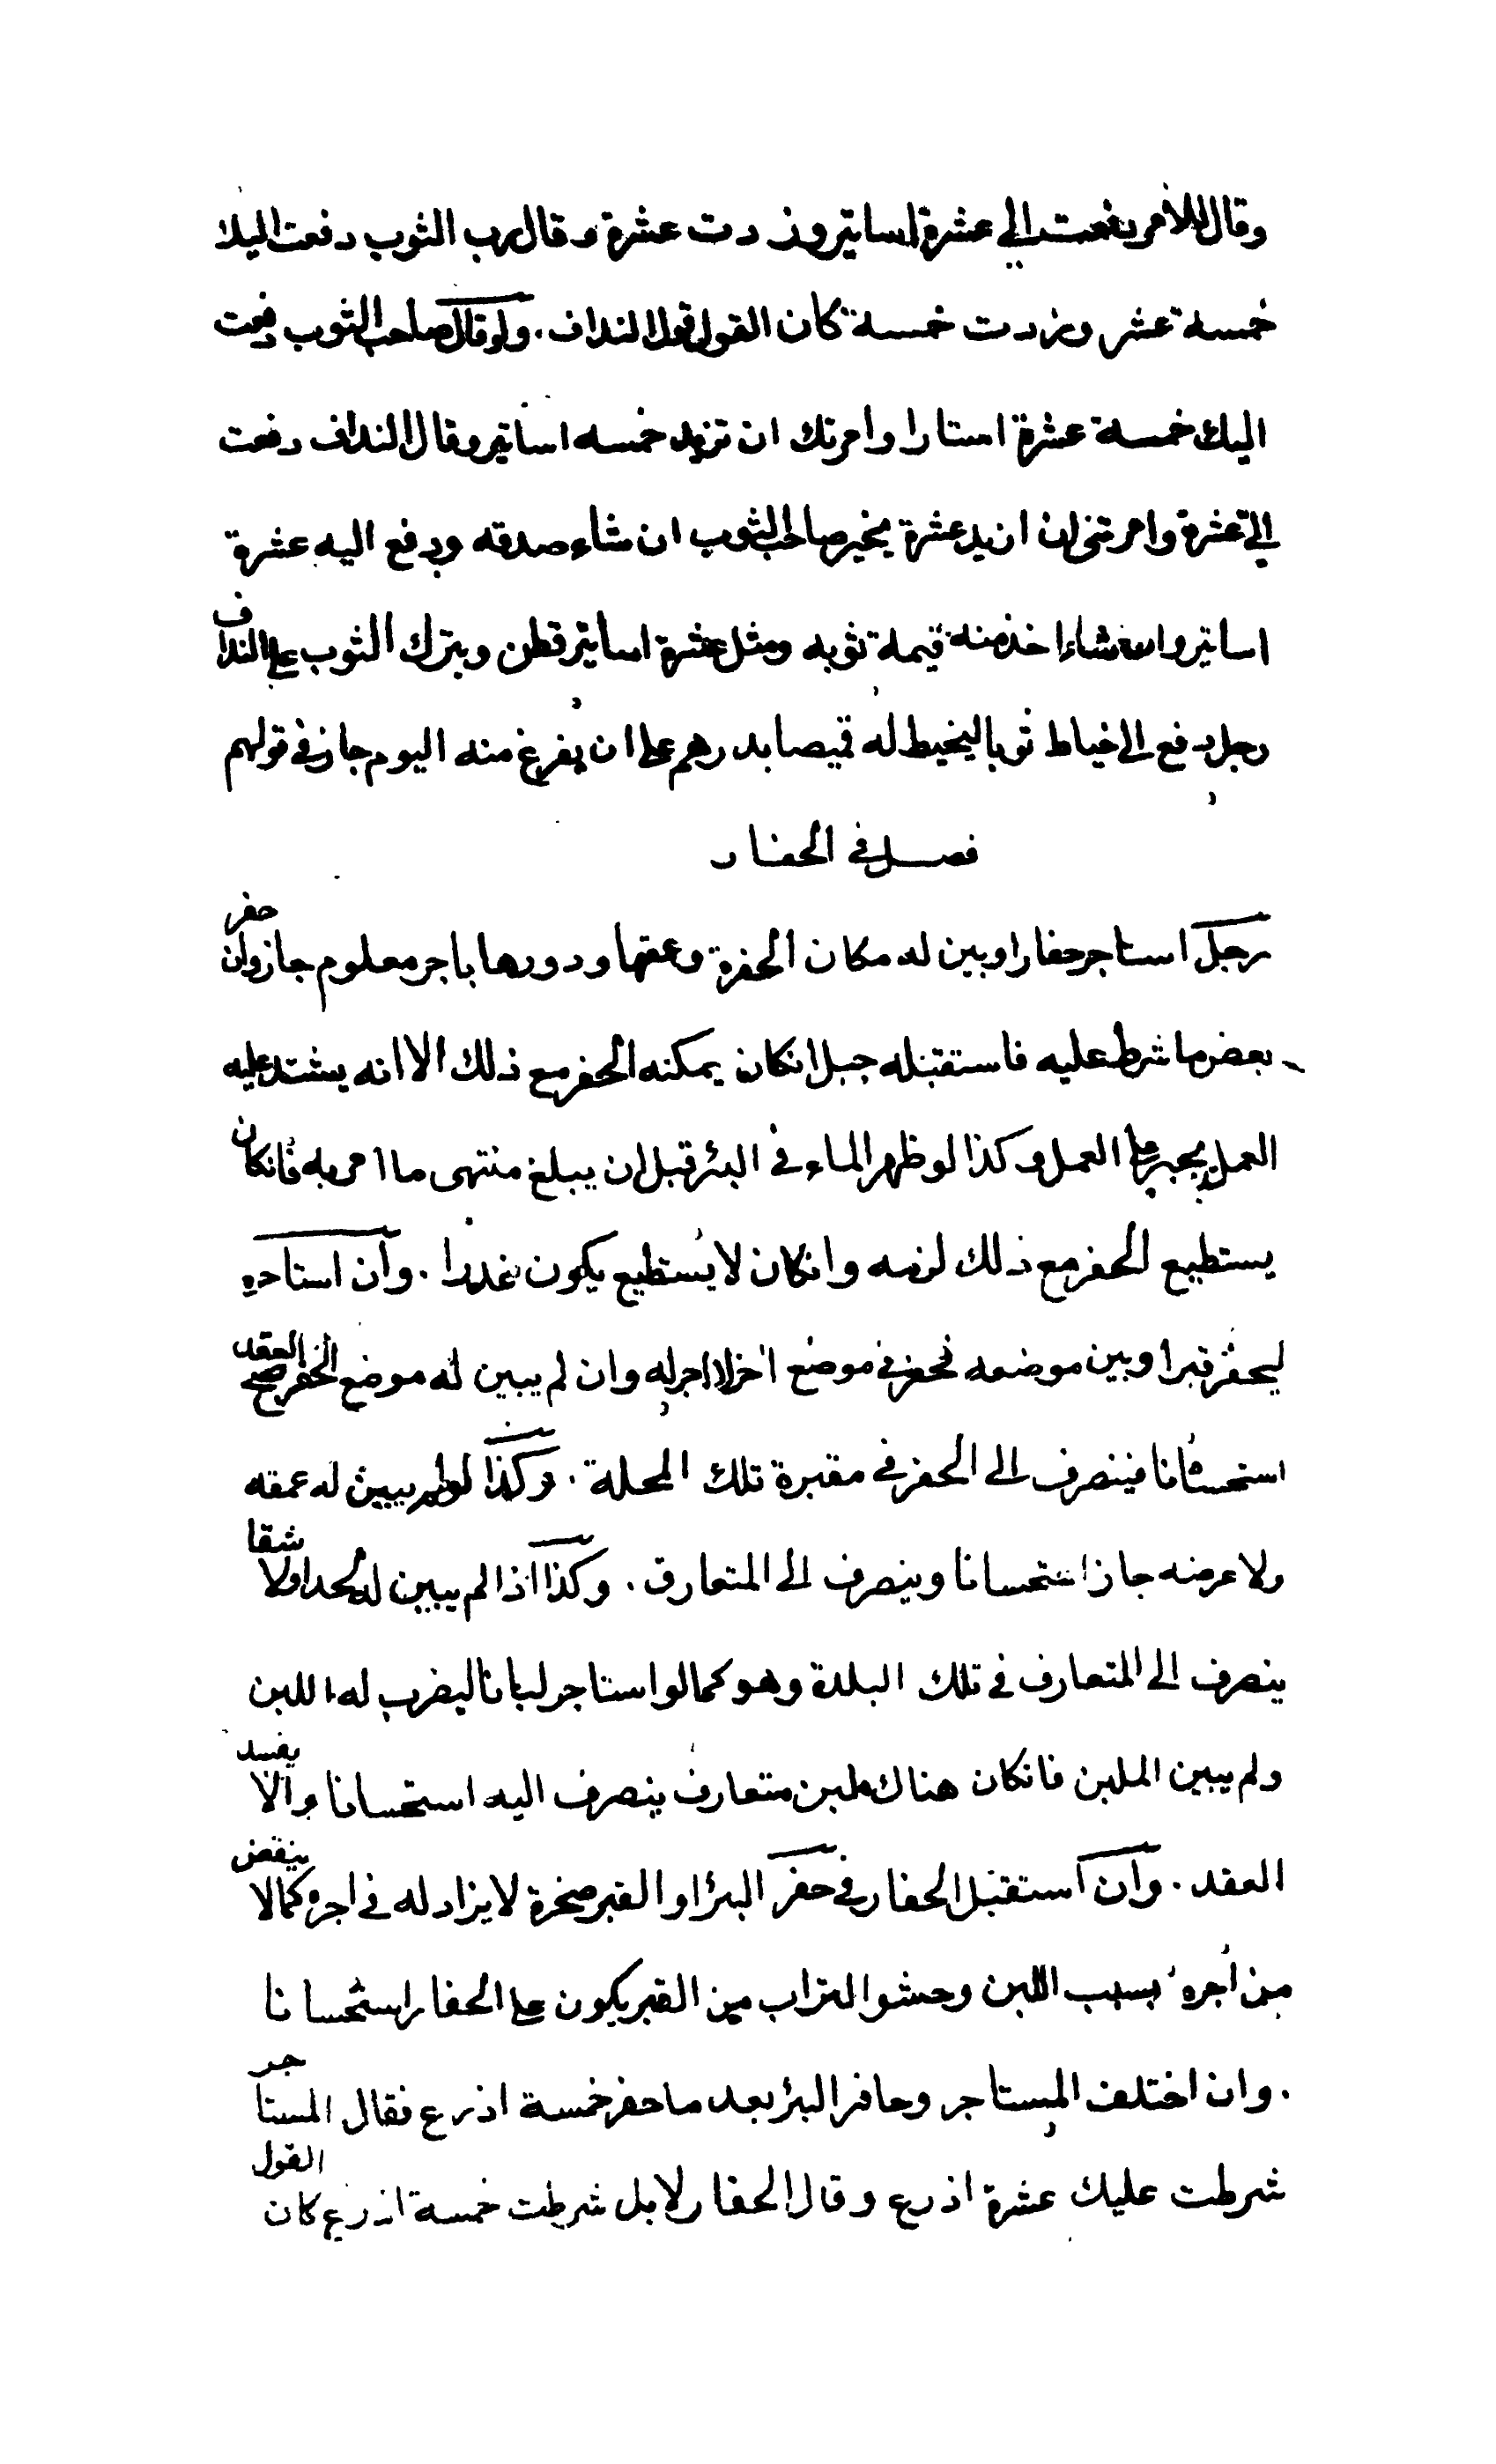 وقال للامر دفعت الي عشرة اساتير وزدت عشرة وقال رب الثوب دفعت اليك
خمسة عشر وزدت خمسة كان القول قول النداف . ولو قال صاحب الثوب دفعت
اليك خمسة عشرة استارا وامرتك ان تزيد خمسه اساتير وقال النداف دفعت
الي عشرة وامرتني ان ازيد عشرة يخير صاحب الثوب ان شاء صدقه ودفع اليه عشرة
اساتير وان شاء اخذ منه قيمة ثوبه ومثل عشرة اساتير قطن ويترك الثوب على النداف
رجل دفع الى خياط ثوبا ليخيط له قميصا بدرهم على ان يفرغ منه اليوم جاز في قولهم
فصل في الحفار
رجل استاجر حفارا وبين له مكان الحفرة وعمقها ودورها باجر معلوم جاز وان حفر
بعض ما شرط عليه فاستقبله جبل انكان يمكنه الحفر مع ذلك الا انه يشتد عليه
العمل يجبر على العمل وكذا لو ظهر الماء في البئر قبل ان يبلغ منتهى ما امر به فانكان
يستطيع الحفر مع ذلك لزمه وانكان لا يستطيع يكون عذرا . وان استاجره
ليحفر قبرا وبين موضعه فحفر في موضع اخر لا اجر له وان لم يبين له موضع الحفر صح العقد
استحسانا فينصرف الى الحفر في مقبرة تلك المحلة . وكذا لو لم يبين له عمقه
ولا عرضه جاز استحسانا وينصرف الى المتعارف . وكذا اذا لم يبين له لحدا ولا شقا
ينصرف الى المتعارف في تلك البلدة وهو كما لو استاجر لبانا ليضرب له اللبن
ولم يبين الملبن فانكان هناك ملبن متعارف ينصرف اليه استحسانا والا يفسد
العقد . وان استقبل الحفار في حفر البئر او القبر صخرة لا يزاد له في اجره كما لا ينقض
من اجره بسبب اللبن وحشو التراب من القبر يكون على الحفار استحسانا
. وان اختلف المستاجر وحافر البئر بعد ما حفر خمسة اذرع فقال المستاجر
شرطت عليك عشرة اذرع وقال الحفار لا بل شرطت خمسة اذرع كان القول